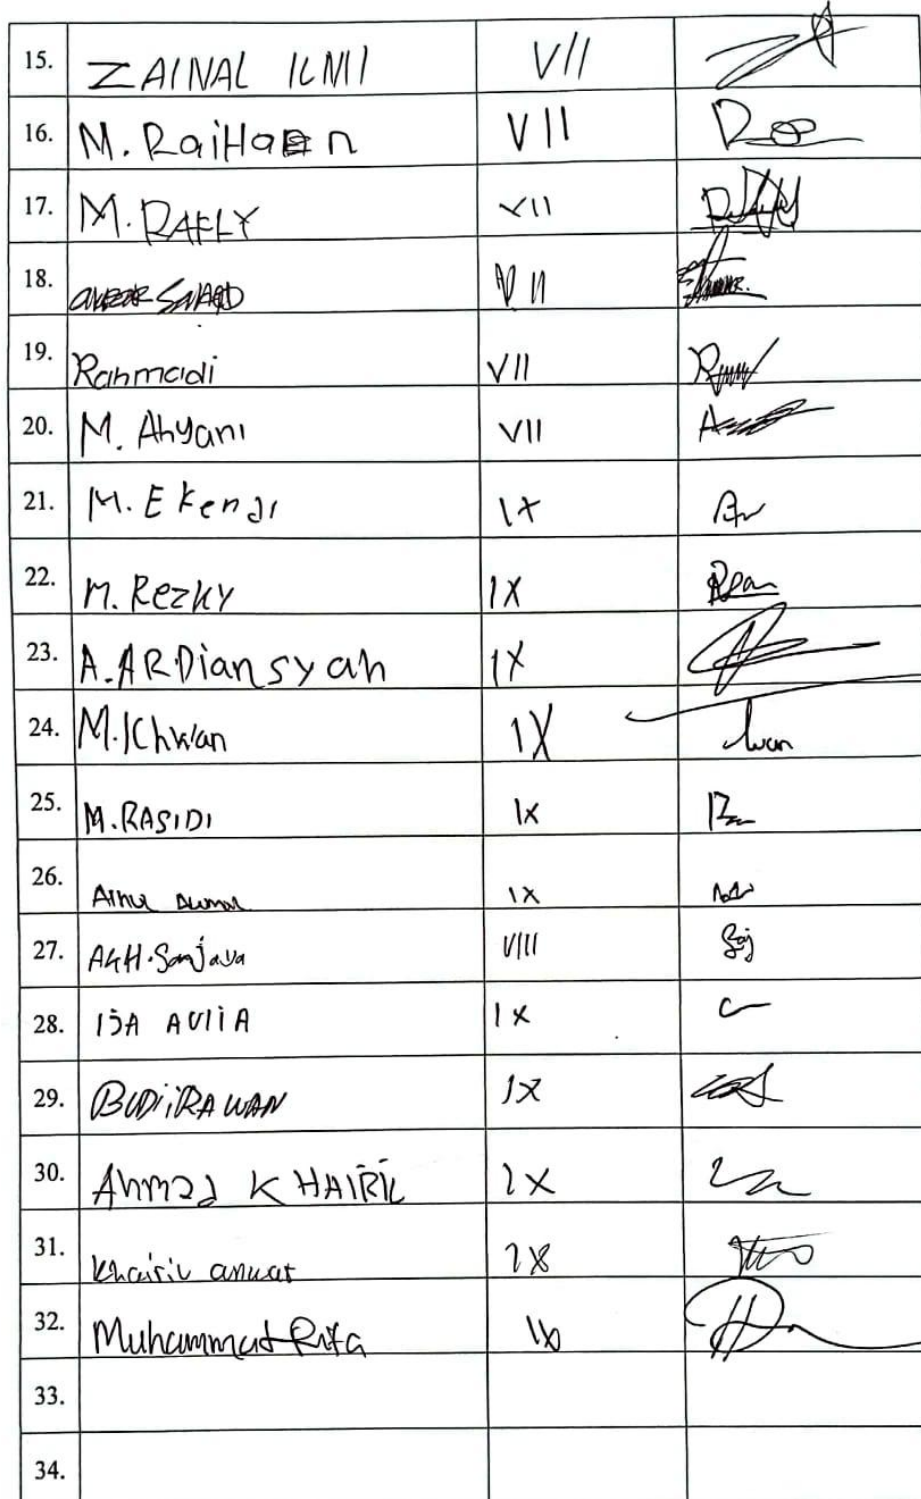 15. ZAINAL ILMI VII
16. M. RaiHan VII
17. M. RAFLY VII
18. SAHAD VII
19. Rahmadi VII
20. M. Ahyani VII
21. M. Ekendi IX
22. M. Rezky IX
23. A. ARDiansyah IX
24. M. Ichwan IX Iwan
25. M. RASIDI IX
26. IX
27. AGH. Sanjaya VIII
28. IJA AULIA IX
29. BUDI IRAWAN IX
30. Ahmad KHAIRIL IX
31. Khairil anwar IX
32. Muhammad Rifa IX
33.
34.